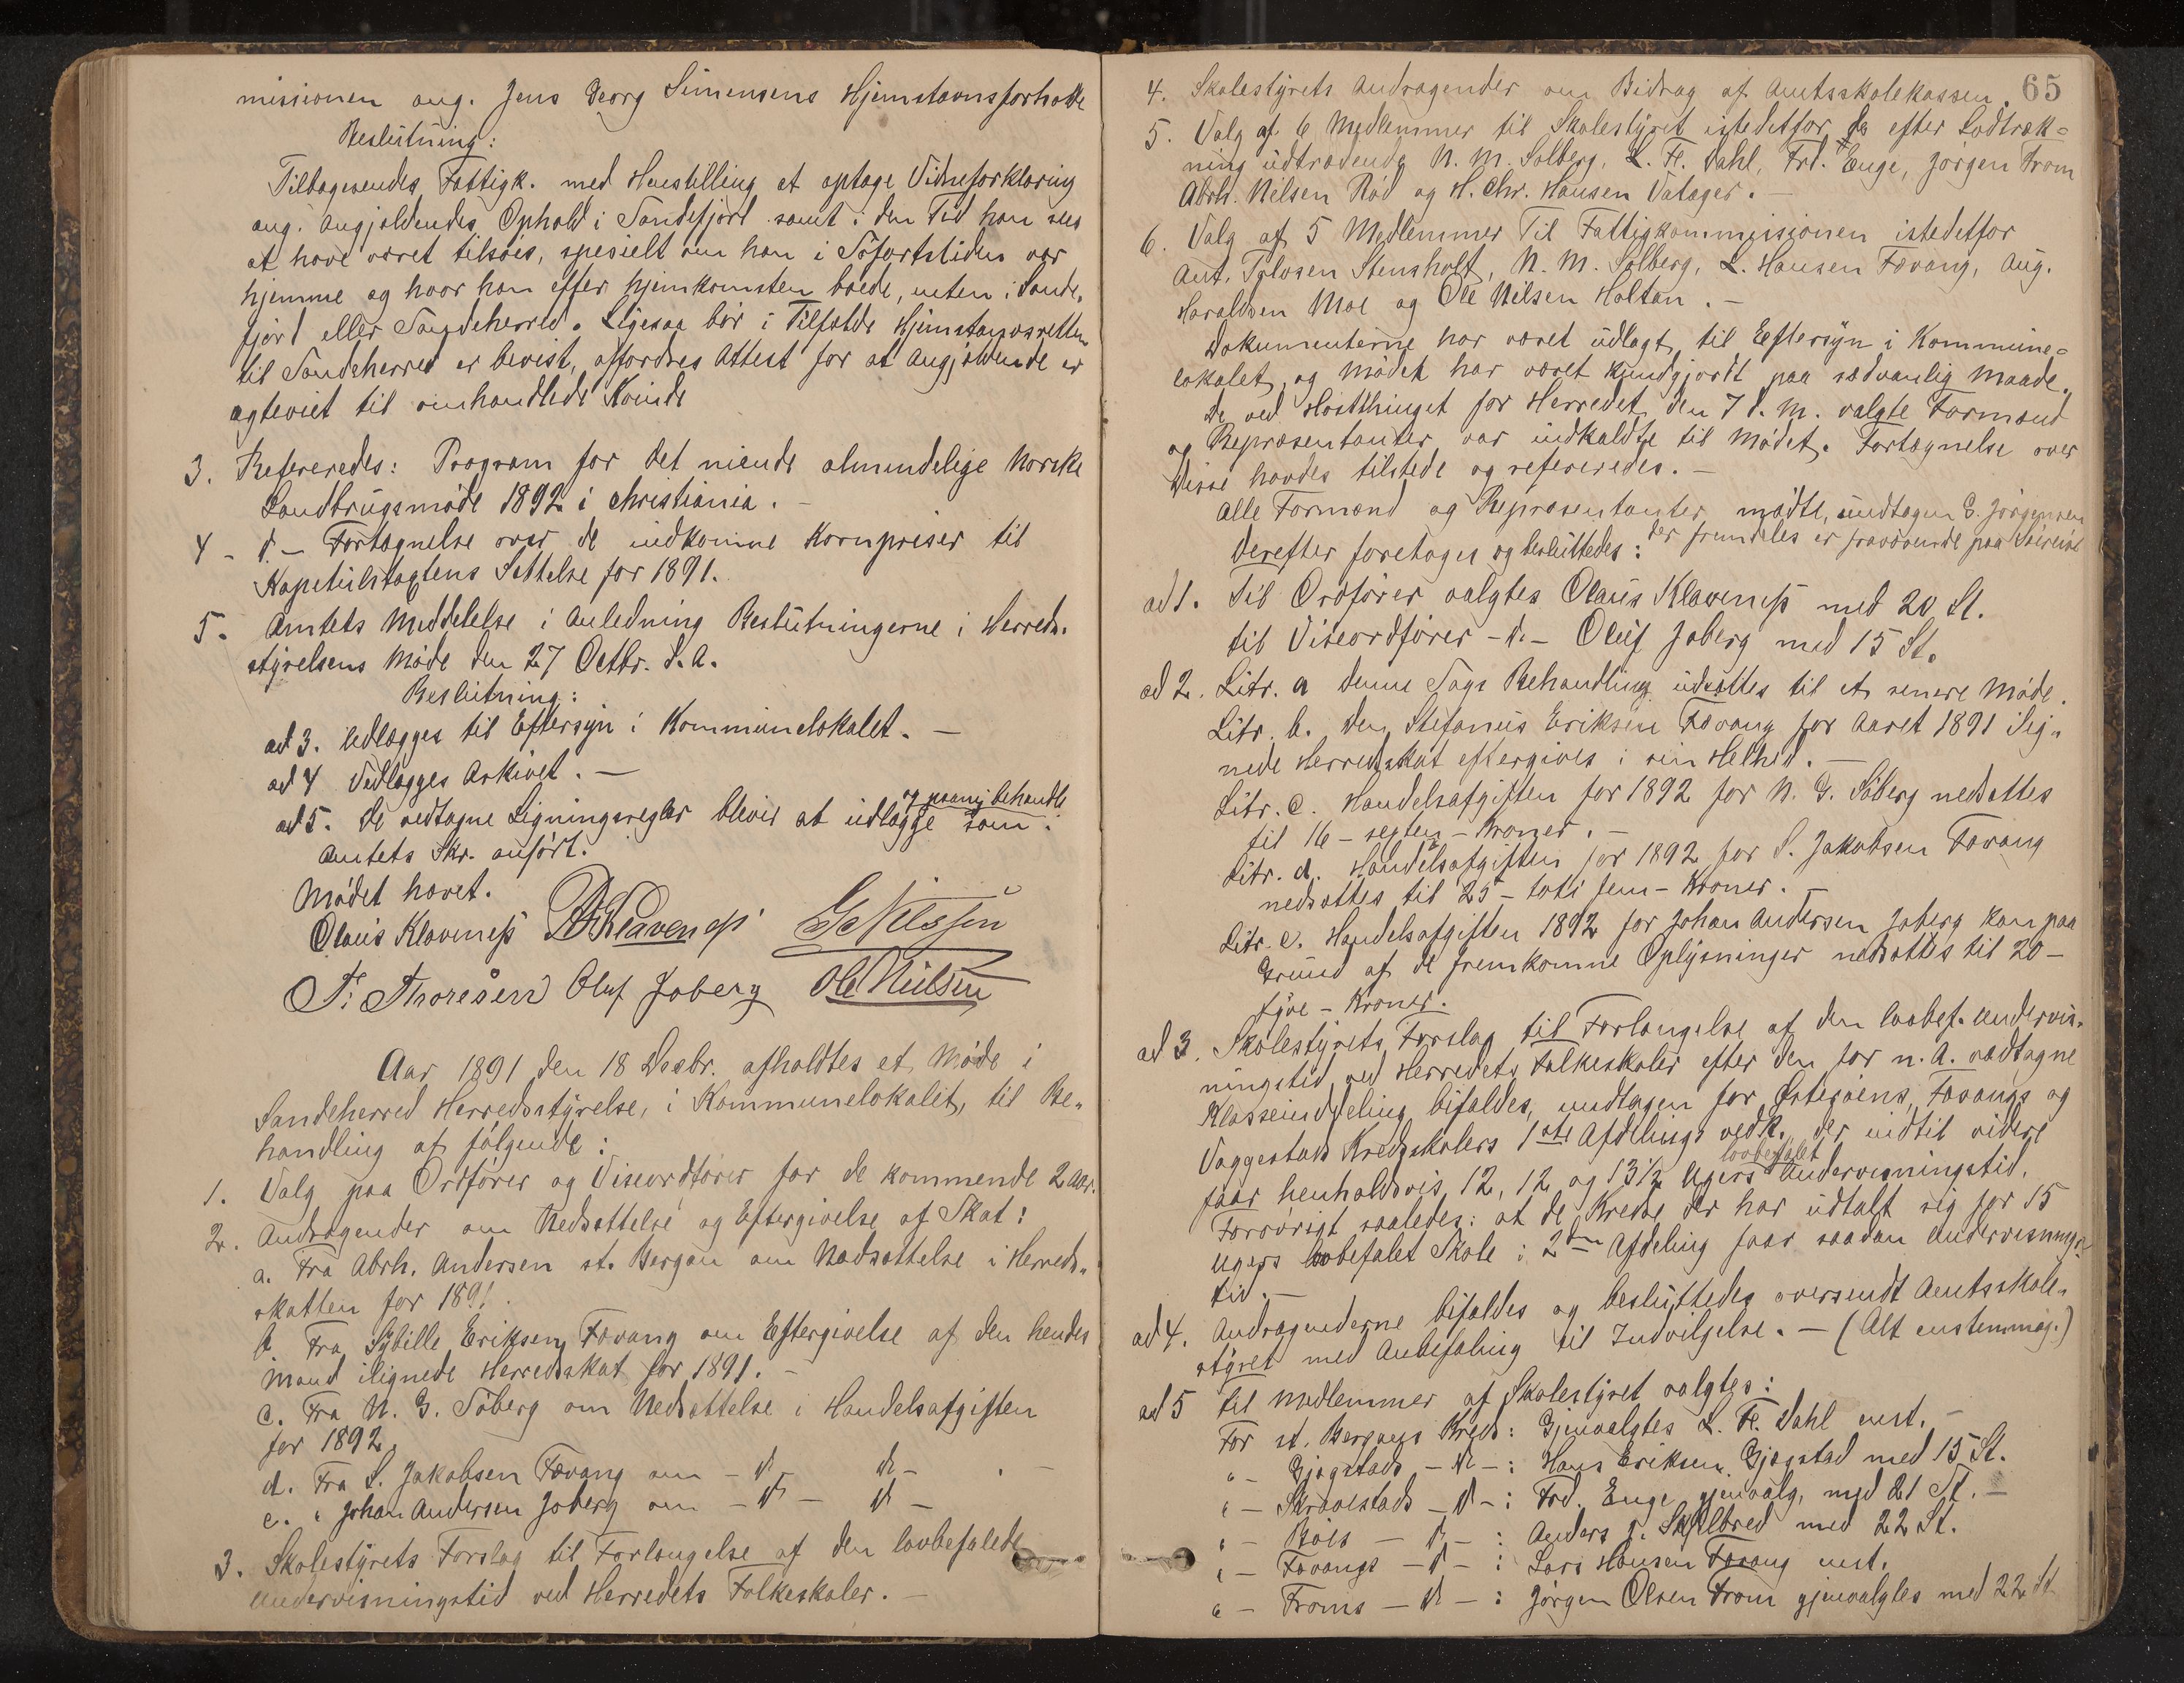 missionen ang. Jens Georg Simensens Hjemstavnsforholde
Beslutning:
Tilbagesendes Fattigk. med Henstilling at optage Vidneforklaring
ang. angjældendes Ophold i Sandefjord samt i den Tid han sees
at have været tilsøes, spesielt om han i Söfartstiden var
hjemme og hvor han efter hjemkomsten boede, enten i Sande-
fjord eller Sandeherred. Ligesaa bör i Tilfælde Hjemstavnsretten
til Sandeherred er bevist, affordres Attest for at angjældende er
ægteviet til omhandlede Kvinde
3. Refereredes: Program for det niende almindelige norske
Landbrugsmøde 1892 i Christiania. -
4 - d - Fortegnelse over de indkomne Kornpriser til
Kapitulstagtens Settelse for 1891.
5. Amtets Meddelelse i Anledning Beslutningerne i Herreds-
styrelsens Møde den 27 Octbr. d. A.
Beslutning:
ad 3. Udlægges til Eftersyn i Kommunelokalet. -
ad 4 Vedlægges Arkivet. -
og paany behandle
ad 5. De vedtagne Ligningsregler bliver at udlægge som i
Amtets Skr. anført.
Mödet hævet.
Olaus Klaveness A Klaveness G Nilssen
T. Thoresen Oluf Joberg Ole Nielsen
Aar 1891 den 18 Desbr. afholdtes et Möde i
Sandeherred Herredsstyrelse, i Kommunelokalet, til Be-
handling af fölgende:
1. Valg paa Ordförer og Viseordförer for de kommende 2 Aar.
2. Andragender om Nedsættelse og Eftergivelse af Skat:
a. Fra Abrh. Andersen st. Bergan om Nedsættelse i Herreds-
skatten for 1891.
b. Fra Sybille Eriksen Fævang om Eftergivelse af den hendes
Mand ilignede Herredsskat for 1891. -
c. Fra N. G. Söberg om Nedsættelse i Handelsafgiften
for 1892.
d. Fra S. Jakobsen Fævang om - d - d - . -
e. " Johan Andersen Joberg om - d - d -
3. Skolestyrets Forslag til Forlængelse af den lovbefalede
Undervisningstid ved Herredets Folkeskoler. -
65
4. Skolestyrets Andragender om Bidrag af Amtsskolekassen.
5. Valg af 6 Medlemmer til Skolestyret istedetfor de efter Lodtræk-
ning udtrædende N. M. Solberg, L. Fr. Dahl, Frd. Enge, Jørgen From
Abrh. Nilsen Röd og H. Chr. Hansen Vatager. -
6. Valg af 5 Medlemmer Til Fattigkommissionen istedetfor
Ant. Tolvsen Stensholt, N. M. Solberg, L. Hansen Fævang, Aug.
Haraldsen Moe og Ole Nilsen Haltan. -
Dokumenterne har været udlagt til Eftersyn i Kommune-
lokalet, og Mödet har været kundgjordt paa sædvanlig Maade.
De ved Høstthinget for Herredet den 7 d. M. valgte Formænd
og Repræsentanter var indkaldte til Mödet. Fortegnelse over
Disse havdes tilstede og refereredes. -
Alle Formænd og Repræsentanter mødte, undtagen G. Jörgensen
der fremdeles er fraværende paa
Derefter foretoges og besluttedes:
ad 1. Til Ordförer valgtes Olaus Klaveness med 20 St.
til Viseordförer - d - Oluf Joberg med 15 St.
ad 2. Litr. a Denne Sags Behandling udsættes til et senere Möde.
Litr. b. Den Stefanus Eriksen Fævang for Aaret 1891 ilig-
nede Herredsskat eftergives i sin Helhed. -
Litr. c. Handelsafgiften for 1892 for N. G. Söberg nedsættes
til 16 - sexten - Kroner. -
Litr. d. Handelsafgiften for 1892 for S. Jakobsen Fævang
nedsættes til 25 - toti fem - Kroner. -
Litr. e. Handelsafgiften 1892 for Johan Andersen Joberg kan paa
Grund af de fremkomne Oplysninger nedsættes til 20 -
tyve - Kroner.
ad 3. Skolestyrets Forslag til Forlængelse af den lovbef. Undervis-
ningstid ved Herredets Folkeskoler efter den for n. A. vedtagne
Klasseinddeling bifaldes, undtagen for Østerøens, Fævangs og
Vaggestads Kredsskolers 1ste Afdelings vedk. der indtil videre
lovbefalet
faar henholdsvis 12, 12 og 13½ Ugers Undervisningstid.
Forøvrigt saaledes: at de Kredse der har udtalt sig for 15
Ugers lovbefalet Skole i 2den Afdeling faar saadan Undervisnings-
tid. -
ad 4. Andragenderne bifaldes og besluttedes oversendt Amtsskole-
styret med Anbefaling til Indvilgelse. - (Alt enstemmig.)
ad 5 Til Medlemmer af Skolestyret valgtes:
For st. Bergans Kreds: Gjenvalgtes L. Fr. Dahl enst. -
" - Gjøgstads - d - : Hans Eriksen Gjøgstad med 15 St.
" - Skravestads - d - : Frd. Enge gjenvalg. med 21 St. -
" - Röds - d - : Anders J. Skjelbred med 22 St.
" - Fævangs - d - : Lars Hansen Fævang enst.
" - Froms - d - : Jørgen Olsen From gjenvalgtes med 22 St